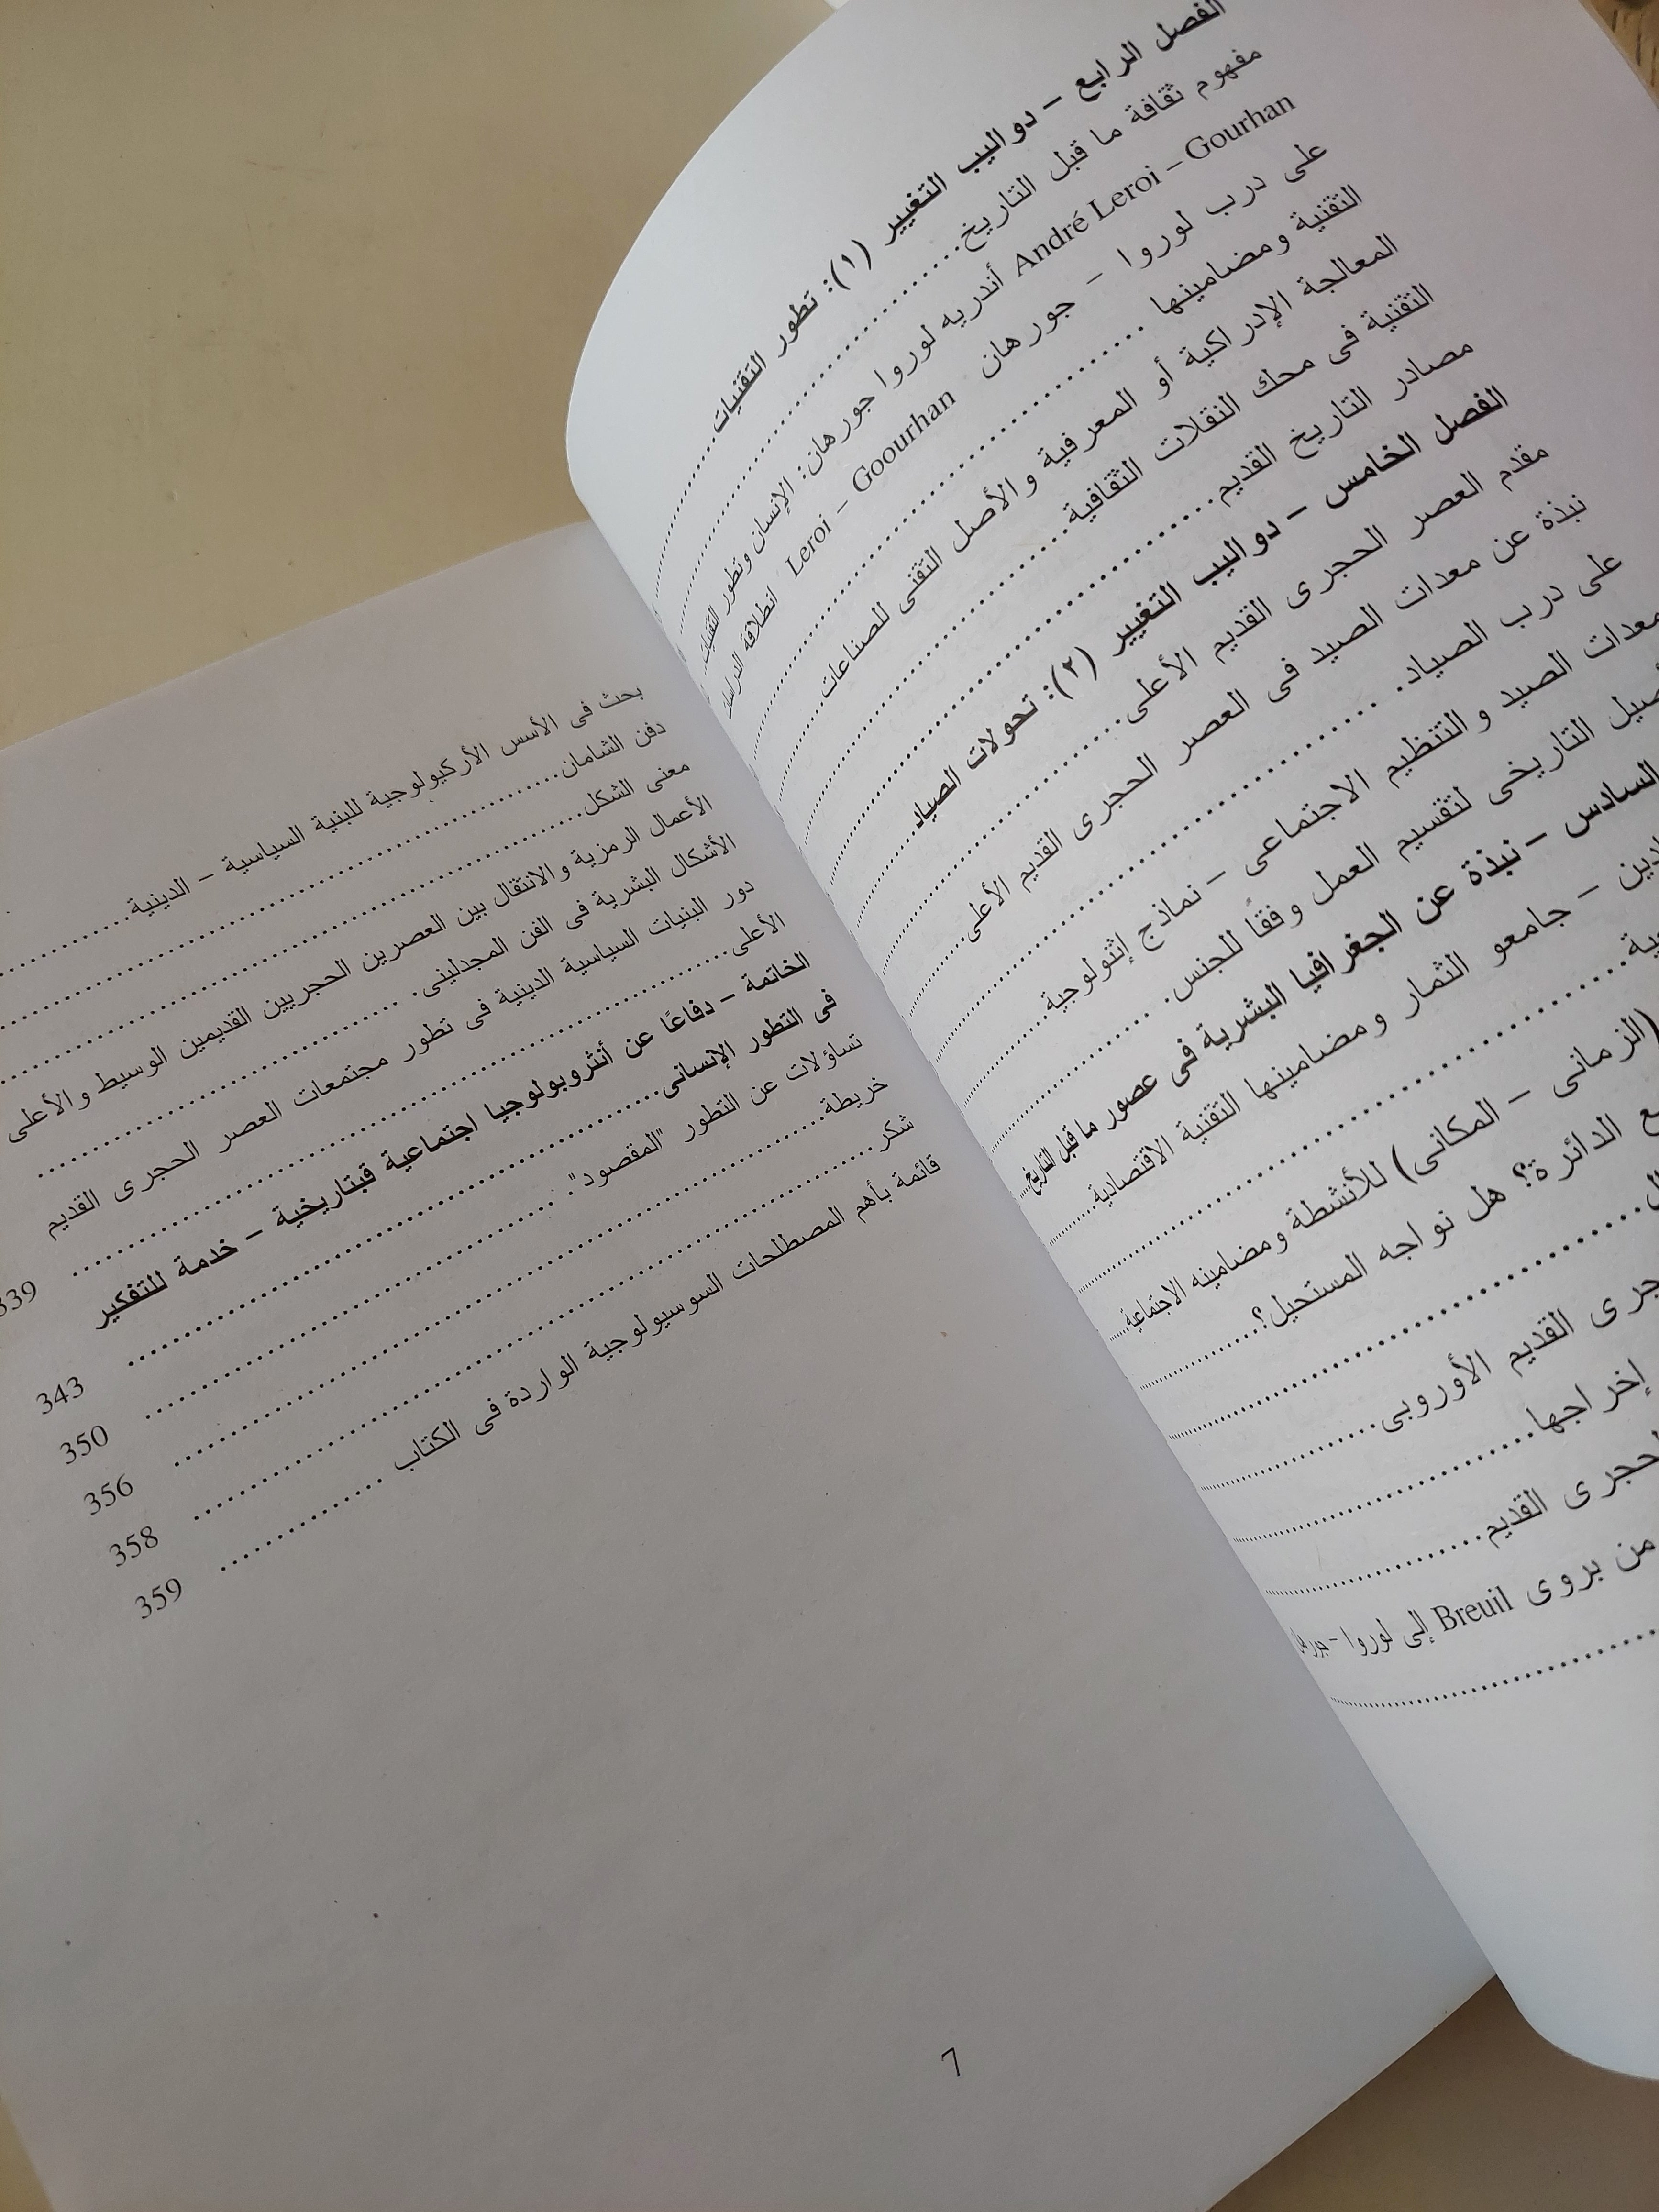 الفصل الرابع – دواليب التغيير (١): تطور التقنيات
مفهوم ثقافة ما قبل التاريخ
André Leroi – Gourhan أندريه لوروا جورهان: الإنسان وتطور التقنيات
على درب لوروا – جورهان Leroi – Goourhan انطلاقة الدراسات
التقنية ومضامينها
المعالجة الإدراكية أو المعرفية والأصل التقنى للصناعات
التقنية فى محك النقلات الثقافية
مصادر التاريخ القديم
الفصل الخامس – دواليب التغيير (٢): تحولات الصياد
مقدم العصر الحجرى القديم الأعلى
نبذة عن معدات الصيد فى العصر الحجرى القديم الأعلى
على درب الصياد
معدات الصيد والتنظيم الاجتماعى – نماذج إثنولوجية
التاريخى لتقسيم العمل وفقًا للجنس
السادس – نبذة عن الجغرافيا البشرية فى عصور ما قبل التاريخ
– جامعو الثمار ومضامينها التقنية الاقتصادية
(الزمانى – المكانى) للأنشطة ومضامينه الاجتماعية
الدائرة؟ هل نواجه المستحيل؟
القديم الأوروبى
إخراجها
القديم
من بروى Breuil إلى لوروا – جورهان
بحث فى الأسس الأركيولوجية للبنية السياسية – الدينية
دفن الشامان
معنى الشكل
الأعمال الرمزية والانتقال بين العصرين الحجريين القديمين الوسيط والأعلى
الأشكال البشرية فى الفن المجدلينى
دور البنيات السياسية الدينية فى تطور مجتمعات العصر الحجرى القديم
الأعلى 339
الخاتمة – دفاعًا عن أنثروبولوجيا اجتماعية قبتاريخية – خدمة للتفكير
فى التطور الإنسانى 343
تساؤلات عن التطور "المقصود" 350
خريطة 356
شكر 358
قائمة بأهم المصطلحات السوسيولوجية الواردة فى الكتاب 359
7